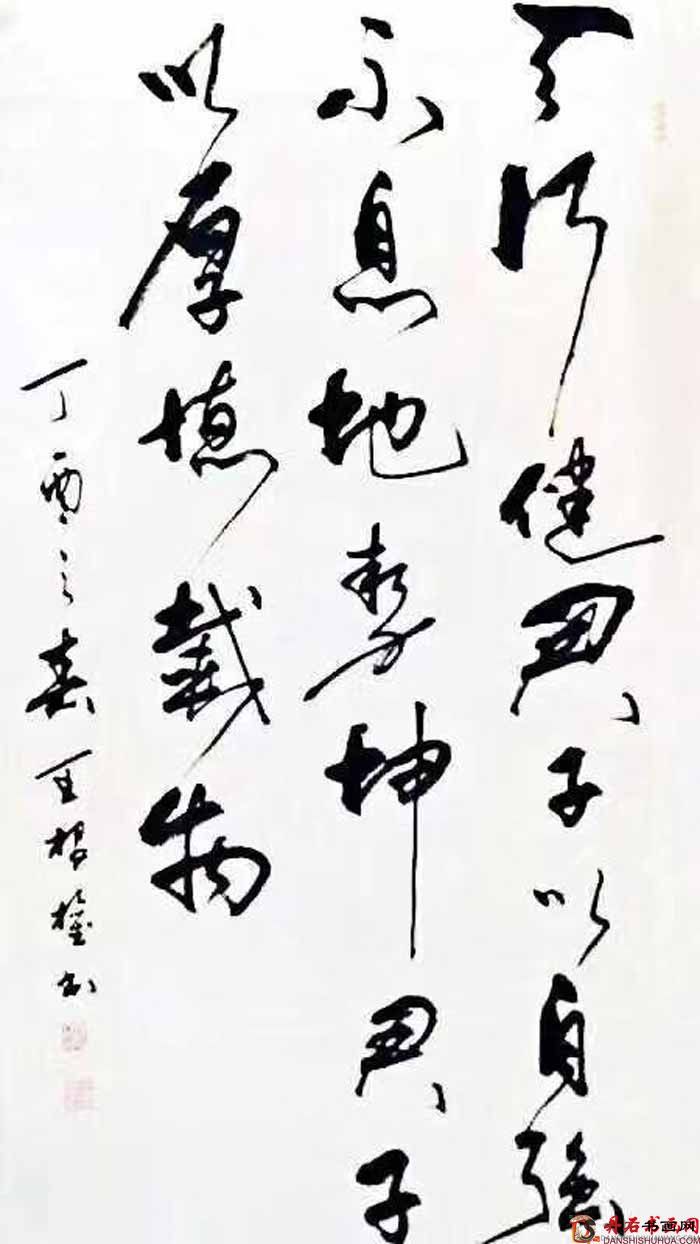 天行健君子以自强
不息地势坤君子
以厚德载物
丁酉之春王根权书
丹石书画网
DANSHISHUHUA.COM